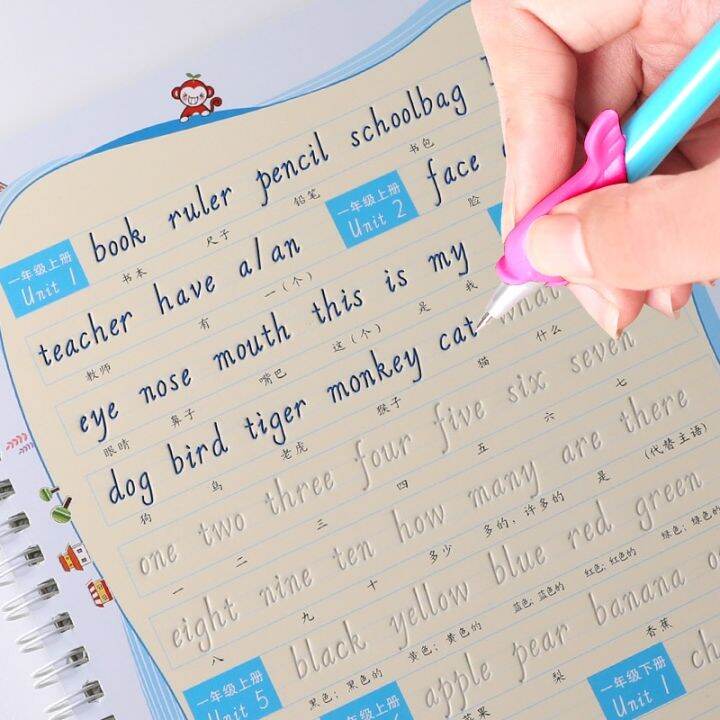 一年级上册 Unit 1 book ruler pencil schoolbag
书本 尺子 铅笔 书包
teacher have a/an 一年级上册 Unit 2 face
教师 有 一(个) 脸
eye nose mouth this is my
眼睛 鼻子 嘴巴 这(个) 是 我
dog bird tiger monkey cat what
狗 鸟 老虎 猴子 猫 什么
one two three four five six seven
一 二 三 四 五 六 七
eight nine ten how many are there
八 九 十 多少 多的,许多的 是 (代替主语)
black yellow blue red green
黑色;黑色的 黄色;黄色的 蓝色;蓝色的 红色;红色的 绿色;绿色的
一年级上册 Unit 5 apple pear banana
苹果 梨 香蕉
一年级上册
一年级下册 Unit 1